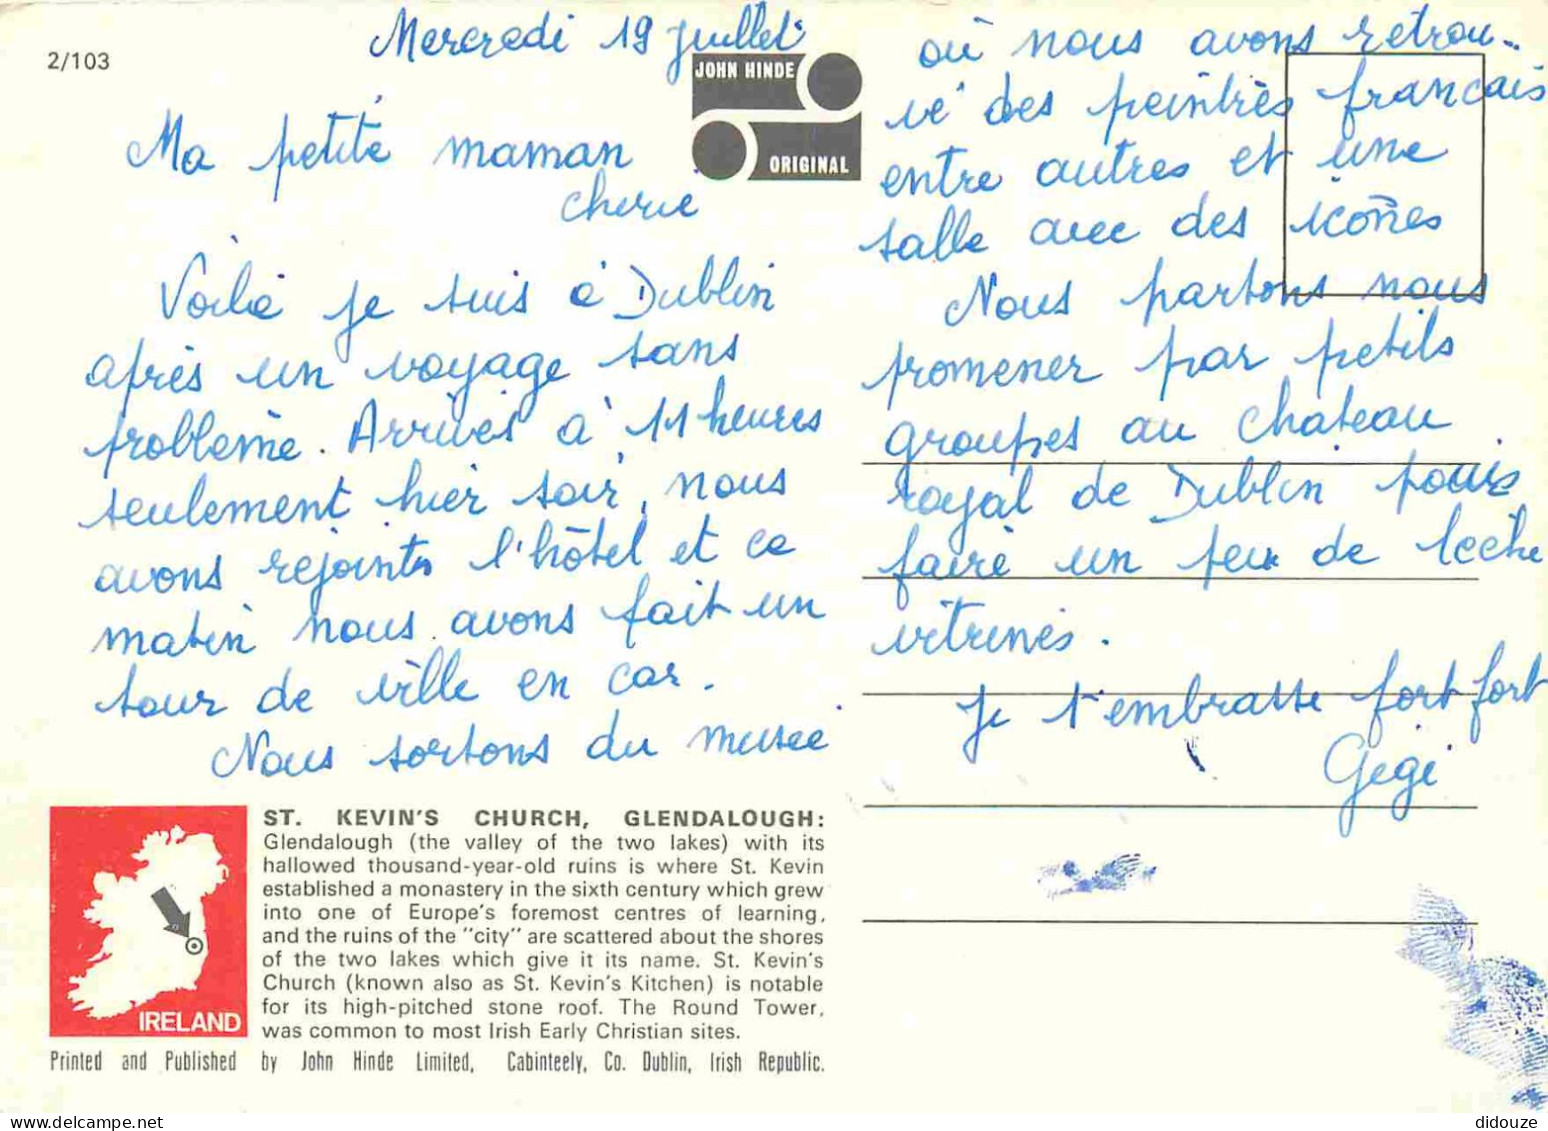 2/103
Mercredi 19 juillet
JOHN HINDE
ORIGINAL
Ma petite maman
cherie
Voilà je suis à Dublin
après un voyage sans
problème. Arrivés à 11 heures
seulement hier soir, nous
avons rejoint l'hôtel et ce
matin nous avons fait un
tour de ville en car.
Nous sortons du musée
où nous avons retrou-
vé des peintres français
entre autres et une
salle avec des icônes
Nous partons nous
promener par petits
groupes au chateau
royal de Dublin puis
faire un peu de leche
vitrines.
Je t'embrasse fort fort
Gégé
ST. KEVIN'S CHURCH, GLENDALOUGH:
Glendalough (the valley of the two lakes) with its
hallowed thousand-year-old ruins is where St. Kevin
established a monastery in the sixth century which grew
into one of Europe's foremost centres of learning,
and the ruins of the "city" are scattered about the shores
of the two lakes which give it its name. St. Kevin's
Church (known also as St. Kevin's Kitchen) is notable
for its high-pitched stone roof. The Round Tower,
was common to most Irish Early Christian sites.
IRELAND
Printed and Published by John Hinde Limited, Cabinteely, Co. Dublin, Irish Republic.
didouze